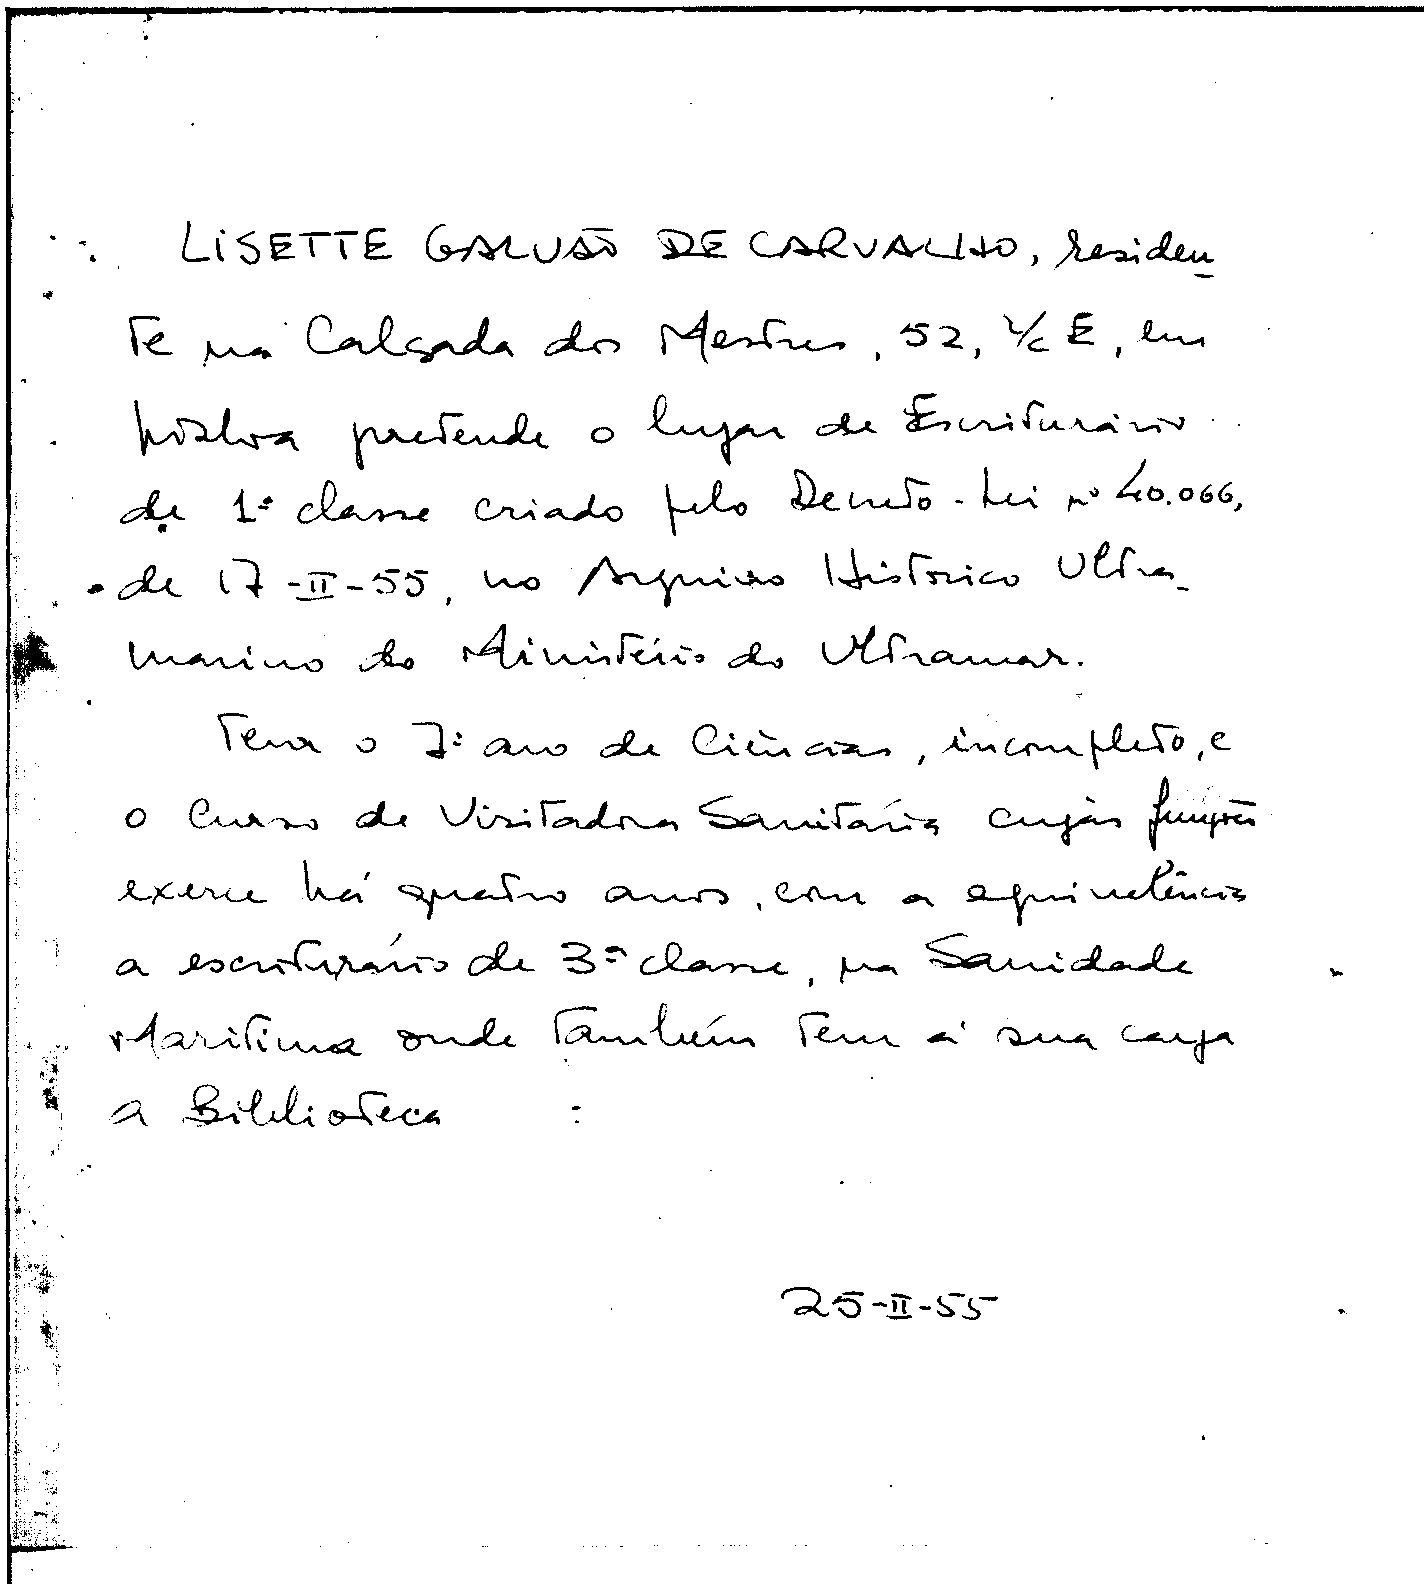 LISETTE GALVÃO DE CARVALHO, residen
te na Calçada dos Mestres, 52, r/c E, em
Lisboa pretende o lugar de Escriturário
de 1ª classe criado pelo Decreto-Lei nº 40.066,
de 17-II-55, no Arquivo Histórico Ultra-
marino do Ministério do Ultramar.
Tem o 7º ano de Ciências, incompleto, e
o Curso de Visitadora Sanitária cujas funções
exerce há quatro anos, com a equivalência
a escriturário de 3ª classe, na Sanidade
Marítima onde também tem á sua carga
a Biblioteca
25-II-55